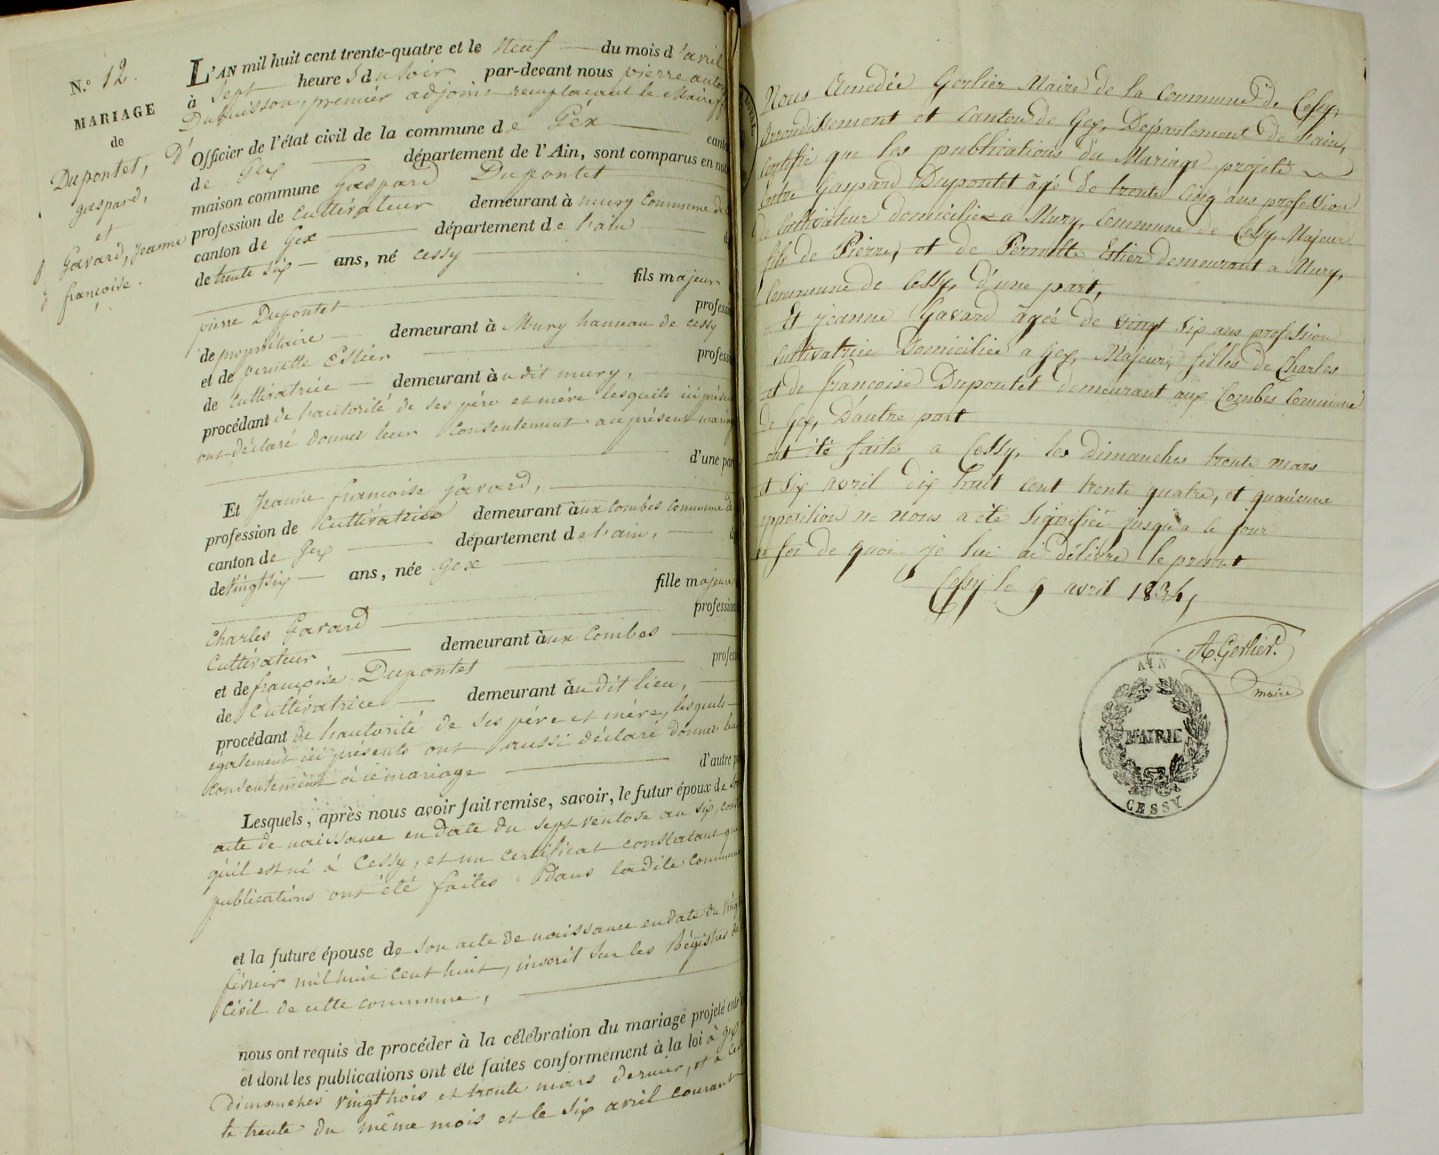 N.º 12.
MARIAGE
de
Dupontet,
gaspard,
et
Gavard, Jeanne
françoise.
L'AN mil huit cent trente-quatre et le Neuf du mois d'avril
à Sept heures du soir par-devant nous pierre
Dubuisson, premier adjoint remplaçant le Maire
Officier de l'état civil de la commune de Gex
de Gex département de l'Ain, sont comparus en
maison commune Gaspard Dupontet
profession de Cultivateur demeurant à mury Commune de
canton de Gex département de l'ain
de trente six ans, né cessy
fils majeur
pierre Dupontet
de propriétaire demeurant à Mury hameau de cessy
et de pernette Estier
de Cultivatrice demeurant audit mury,
procédant de l'autorité de ses père et mère lesquels ici
ont déclaré donner leur Consentement au présent
d'une
Et Jeanne françoise Gavard,
profession de Cultivatrice demeurant aux combes commune
canton de Gex département de l'ain,
de vingt six ans, née Gex
fille majeure
Charles Gavard profession
Cultivateur demeurant aux Combes
et de françoise Dupontet
de Cultivatrice demeurant audit lieu,
procédant de l'autorité de ses père et mère, lesquels
egalement ici présents ont aussi déclaré donner
Consentement à ce mariage
d'autre
Lesquels, après nous avoir fait remise, savoir, le futur époux de
acte de naissance en date du sept ventose an six,
qu'il est né à Cessy, et un certificat constatant que
publications ont été faites dans ladite commune
et la future épouse de son acte de naissance en date du
février mil huit cent huit, inscrit sur les Régistres
Civil de cette commune,
nous ont requis de procéder à la célébration du mariage projeté
et dont les publications ont été faites conformément à la loi à gex
dimanches vingt trois et trente mars dernier, et à
le trente du même mois et le six avril courant
Nous Amedée Gerlier Maire de la commune de Cessy,
Arrondissement et Canton de Gex, Département de l'ain,
Certifie que les publications du Mariage projeté
Entre Gaspard Dupontet âgé de trente cinq ans profession
de Cultivateur domicilié a Mury, Commune de Cessy, Majeur
fils de Pierre, et de Pernette Estier demeurant a Mury,
Commune de Cessy, d'une part,
Et jeanne Gavard agée de vingt six ans profession
Cultivatrice Domiciliée a Gex, Majeure, filles de Charles
et de francoise Dupontet demeurant aux Combes Commune
de Gex, D'autre part
ont été faites a Cessy, les dimanches trente mars
et six avril dix huit cent trente quatre, et qu'aucune
opposition ne nous a été signifiée jusqu'a ce jour
en foi de quoi je lui ai délivré le présent
Cessy le 9 avril 1834,
A. Gerlier.
maire
AIN
MAIRIE
CESSY